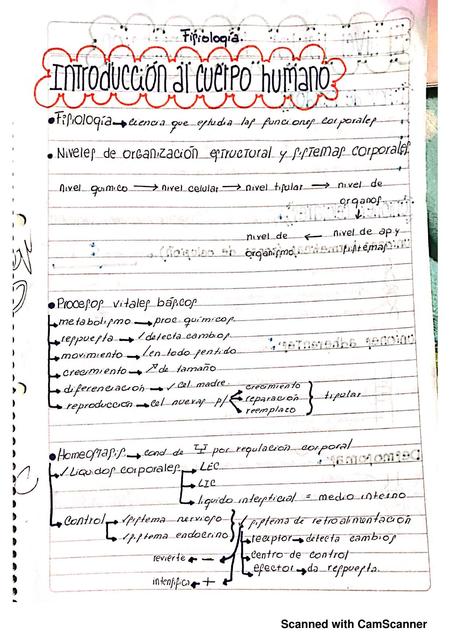 Fisiología.
Introducción al cuerpo humano
• Fisiología → ciencia que estudia las funciones corporales
• Niveles de organización estructural y sistemas corporales
nivel químico → nivel celular → nivel tisular → nivel de
organos
nivel de ← nivel de ap y
organismo sistemas
• Procesos vitales básicos
metabolismo → proc químicos
respuesta → detecta cambios
movimiento → en todo sentido
crecimiento → ↗ de tamaño
diferenciación → cel madre
crecimiento
reproducción → cel nuevas p/ reparación } tisular
reemplazo
• Homeostasis → cond de por regulación corporal
Liquidos corporales → LEC
→ LIC
→ liquido intersticial = medio interno
Control → sistema nervioso } sistema de retroalimentación
→ sistema endocrino
receptor → detecta cambios
revierte ← − centro de control
efector → da respuesta.
intensifica ← +
Scanned with CamScanner